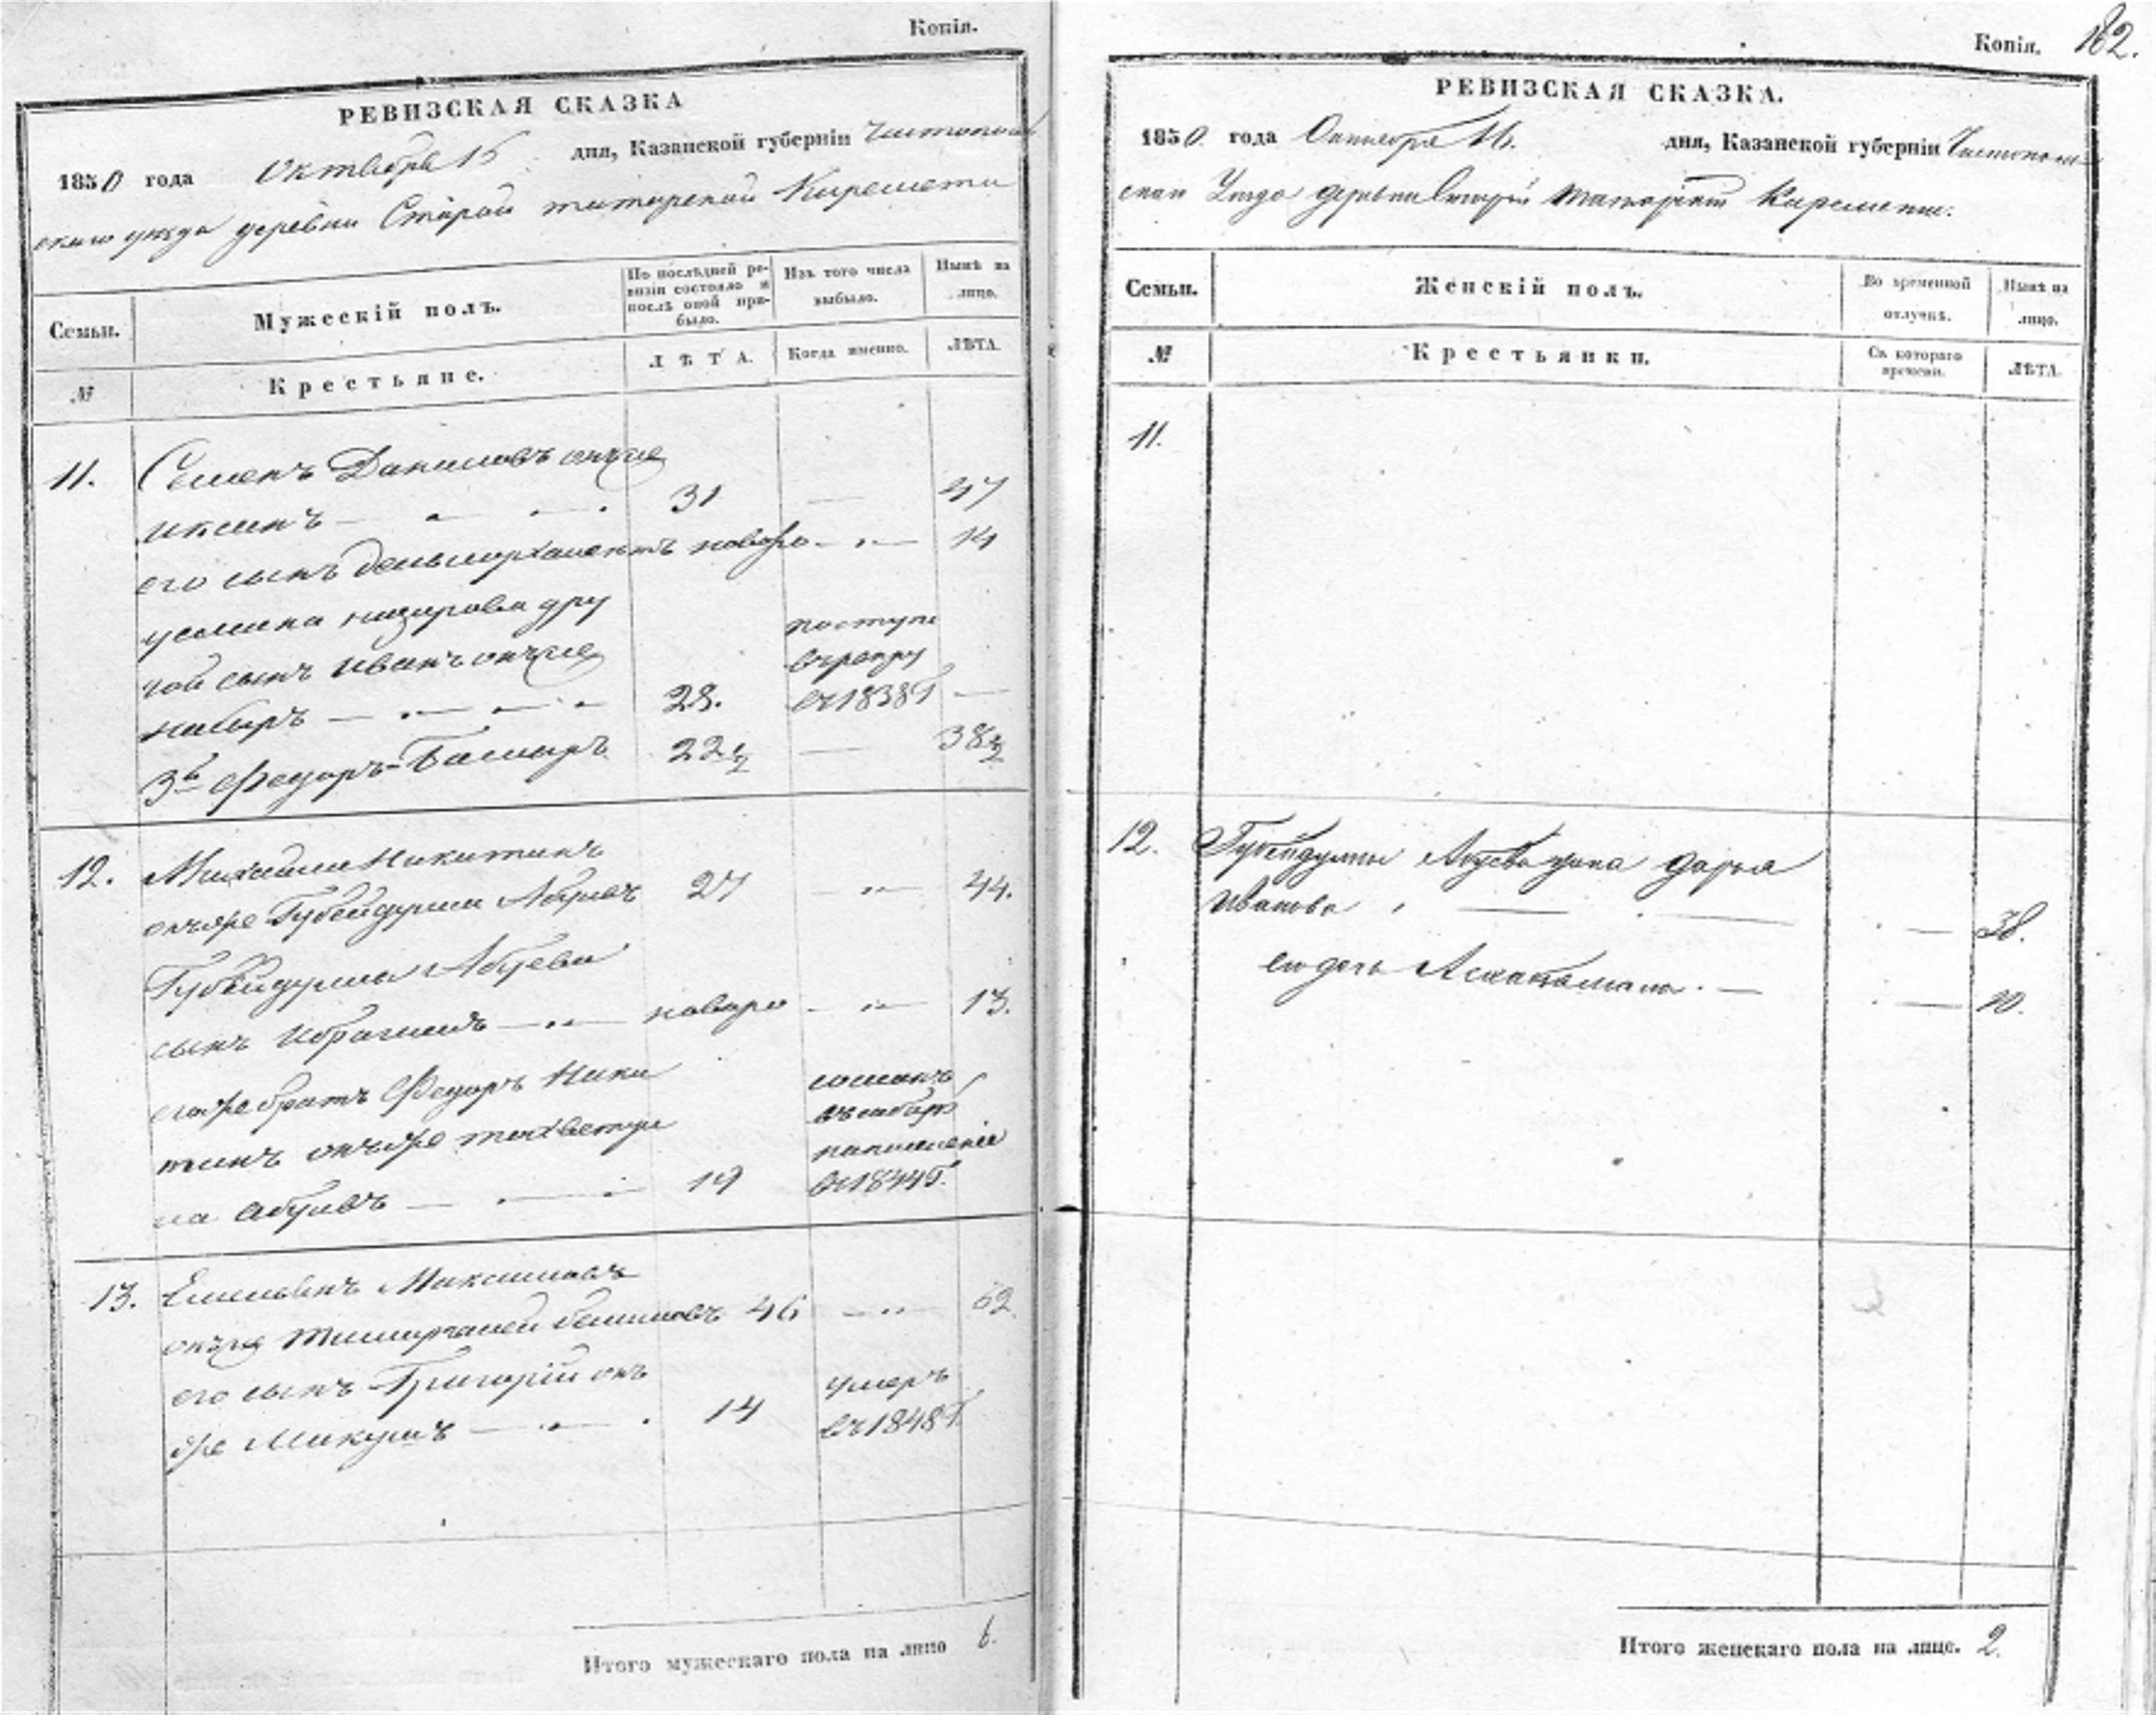 Копія.
РЕВИЗСКАЯ СКАЗКА
1850 года Октября 15 дня, Казанской губерніи Чистополь
скаго уезда деревни Старой татарской Киремети
Семьи.
Мужескій полъ.
По послѣдней ре-
визіи состояло и
послѣ оной при-
было.
Изъ того числа
выбыло.
Нынѣ на
лицо.
№
Крестьяне.
ЛѢТА.
Когда именно.
ЛѢТА.
11. Семенъ Даниловъ онъже
31 — 47
его сынъ новоро 14
дру
гой сынъ Иванъ онъже
поступи
въ рекру
28. въ 1838 г —
3й Федоръ Башаръ 22½ — 38½
12. Михайла Никитинъ
онъже Губейдулла Абуевъ 27 — 44.
Губейдуллы Абуева
сынъ Ибрагимъ новоро — 13.
егоже братъ Федоръ Ники
тинъ онъже
Абуевъ 19
въ 1844 г.
13. Емельянъ Максимовъ
онъже 46 — 62
его сынъ Григорій онъ
же Микушъ 14
умеръ
въ 1848 г.
Итого мужескаго пола на лицо 6.
Копія. 162.
РЕВИЗСКАЯ СКАЗКА.
1850 года Октября 16. дня, Казанской губерніи Чистополь
скаго Уезда деревни Старой татарской Киремети.
Семьи.
Женскій полъ.
Во временной
отлучкѣ.
Нынѣ на
лицо.
№
Крестьянки.
Съ котораго
времени.
ЛѢТА.
11.
12. Губейдуллы Абуева жена Дарья
Иванова — 38.
его дочь — 10.
Итого женскаго пола на лице. 2.